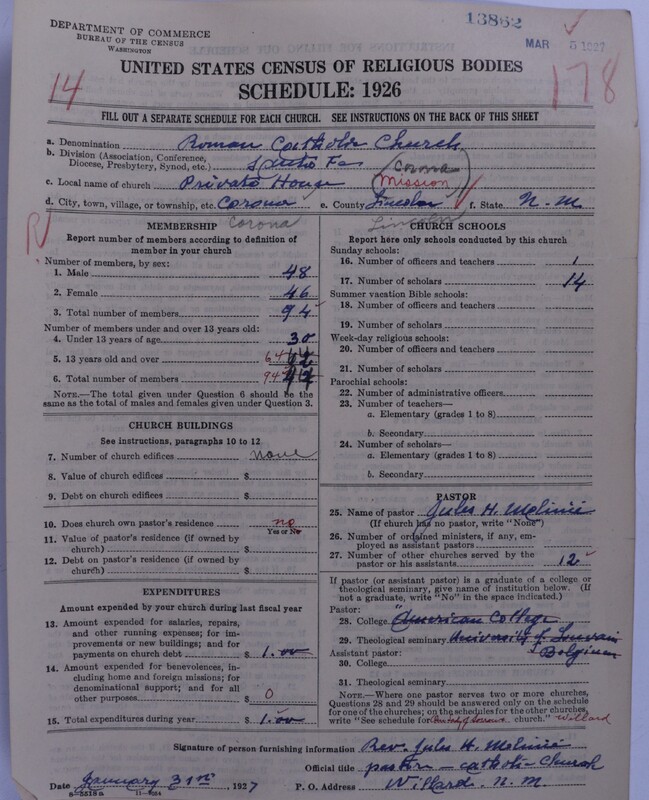 DEPARTMENT OF COMMERCE
BUREAU OF THE CENSUS
WASHINGTON
13862
MAR 5 1927
UNITED STATES CENSUS OF RELIGIOUS BODIES
SCHEDULE: 1926
14
178
FILL OUT A SEPARATE SCHEDULE FOR EACH CHURCH. SEE INSTRUCTIONS ON THE BACK OF THIS SHEET
a. Denomination Roman Catholic Church
b. Division (Association, Conference, Diocese, Presbytery, Synod, etc.) Santa Fe
Corona
c. Local name of church Private House Mission
d. City, town, village, or township, etc. Corona e. County Lincoln f. State N. M.
Corona Lincoln
MEMBERSHIP
Report number of members according to definition of
member in your church
Number of members, by sex:
1. Male 48
2. Female 46
3. Total number of members 94
Number of members under and over 13 years old:
4. Under 13 years of age 30
5. 13 years old and over 64
6. Total number of members 94
NOTE.—The total given under Question 6 should be the
same as the total of males and females given under Question 3.
CHURCH BUILDINGS
See instructions, paragraphs 10 to 12
7. Number of church edifices none
8. Value of church edifices $
9. Debt on church edifices $
10. Does church own pastor's residence no
Yes or No
11. Value of pastor's residence (if owned by
church) $
12. Debt on pastor's residence (if owned by
church) $
EXPENDITURES
Amount expended by church during last fiscal year
13. Amount expended for salaries, repairs,
and other running expenses; for im-
provements or new buildings; and for
payments on church debt $ 1.00
14. Amount expended for benevolences, in-
cluding home and foreign missions; for
denominational support; and for all
other purposes $ 0
15. Total expenditures during year $ 1.00
CHURCH SCHOOLS
Report here only schools conducted by this church
Sunday schools:
16. Number of officers and teachers 1
17. Number of scholars 14
Summer vacation Bible schools:
18. Number of officers and teachers
19. Number of scholars
Week-day religious schools:
20. Number of officers and teachers
21. Number of scholars
Parochial schools:
22. Number of administrative officers
23. Number of teachers—
a. Elementary (grades 1 to 8)
b. Secondary
24. Number of scholars—
a. Elementary (grades 1 to 8)
b. Secondary
PASTOR
25. Name of pastor Jules H. Molinié
(If church has no pastor, write "None")
26. Number of ordained ministers, if any, em-
ployed as assistant pastors
27. Number of other churches served by the
pastor or his assistants 12
If pastor (or assistant pastor) is a graduate of a college or
theological seminary, give name of institution below. (If
not a graduate, write "No" in the space indicated.)
Pastor:
28. College American College
29. Theological seminary University of Louvain
Assistant pastor: Belgium
30. College
31. Theological seminary
NOTE.—Where one pastor serves two or more churches,
Questions 28 and 29 should be answered only on the schedule
for one of the churches; on the schedules for the other churches,
write "See schedule for church." Willard
Signature of person furnishing information Rev. Jules H. Molinié
Official title pastor - catholic church
Date January 31st, 1927 P. O. Address Willard. N. M.